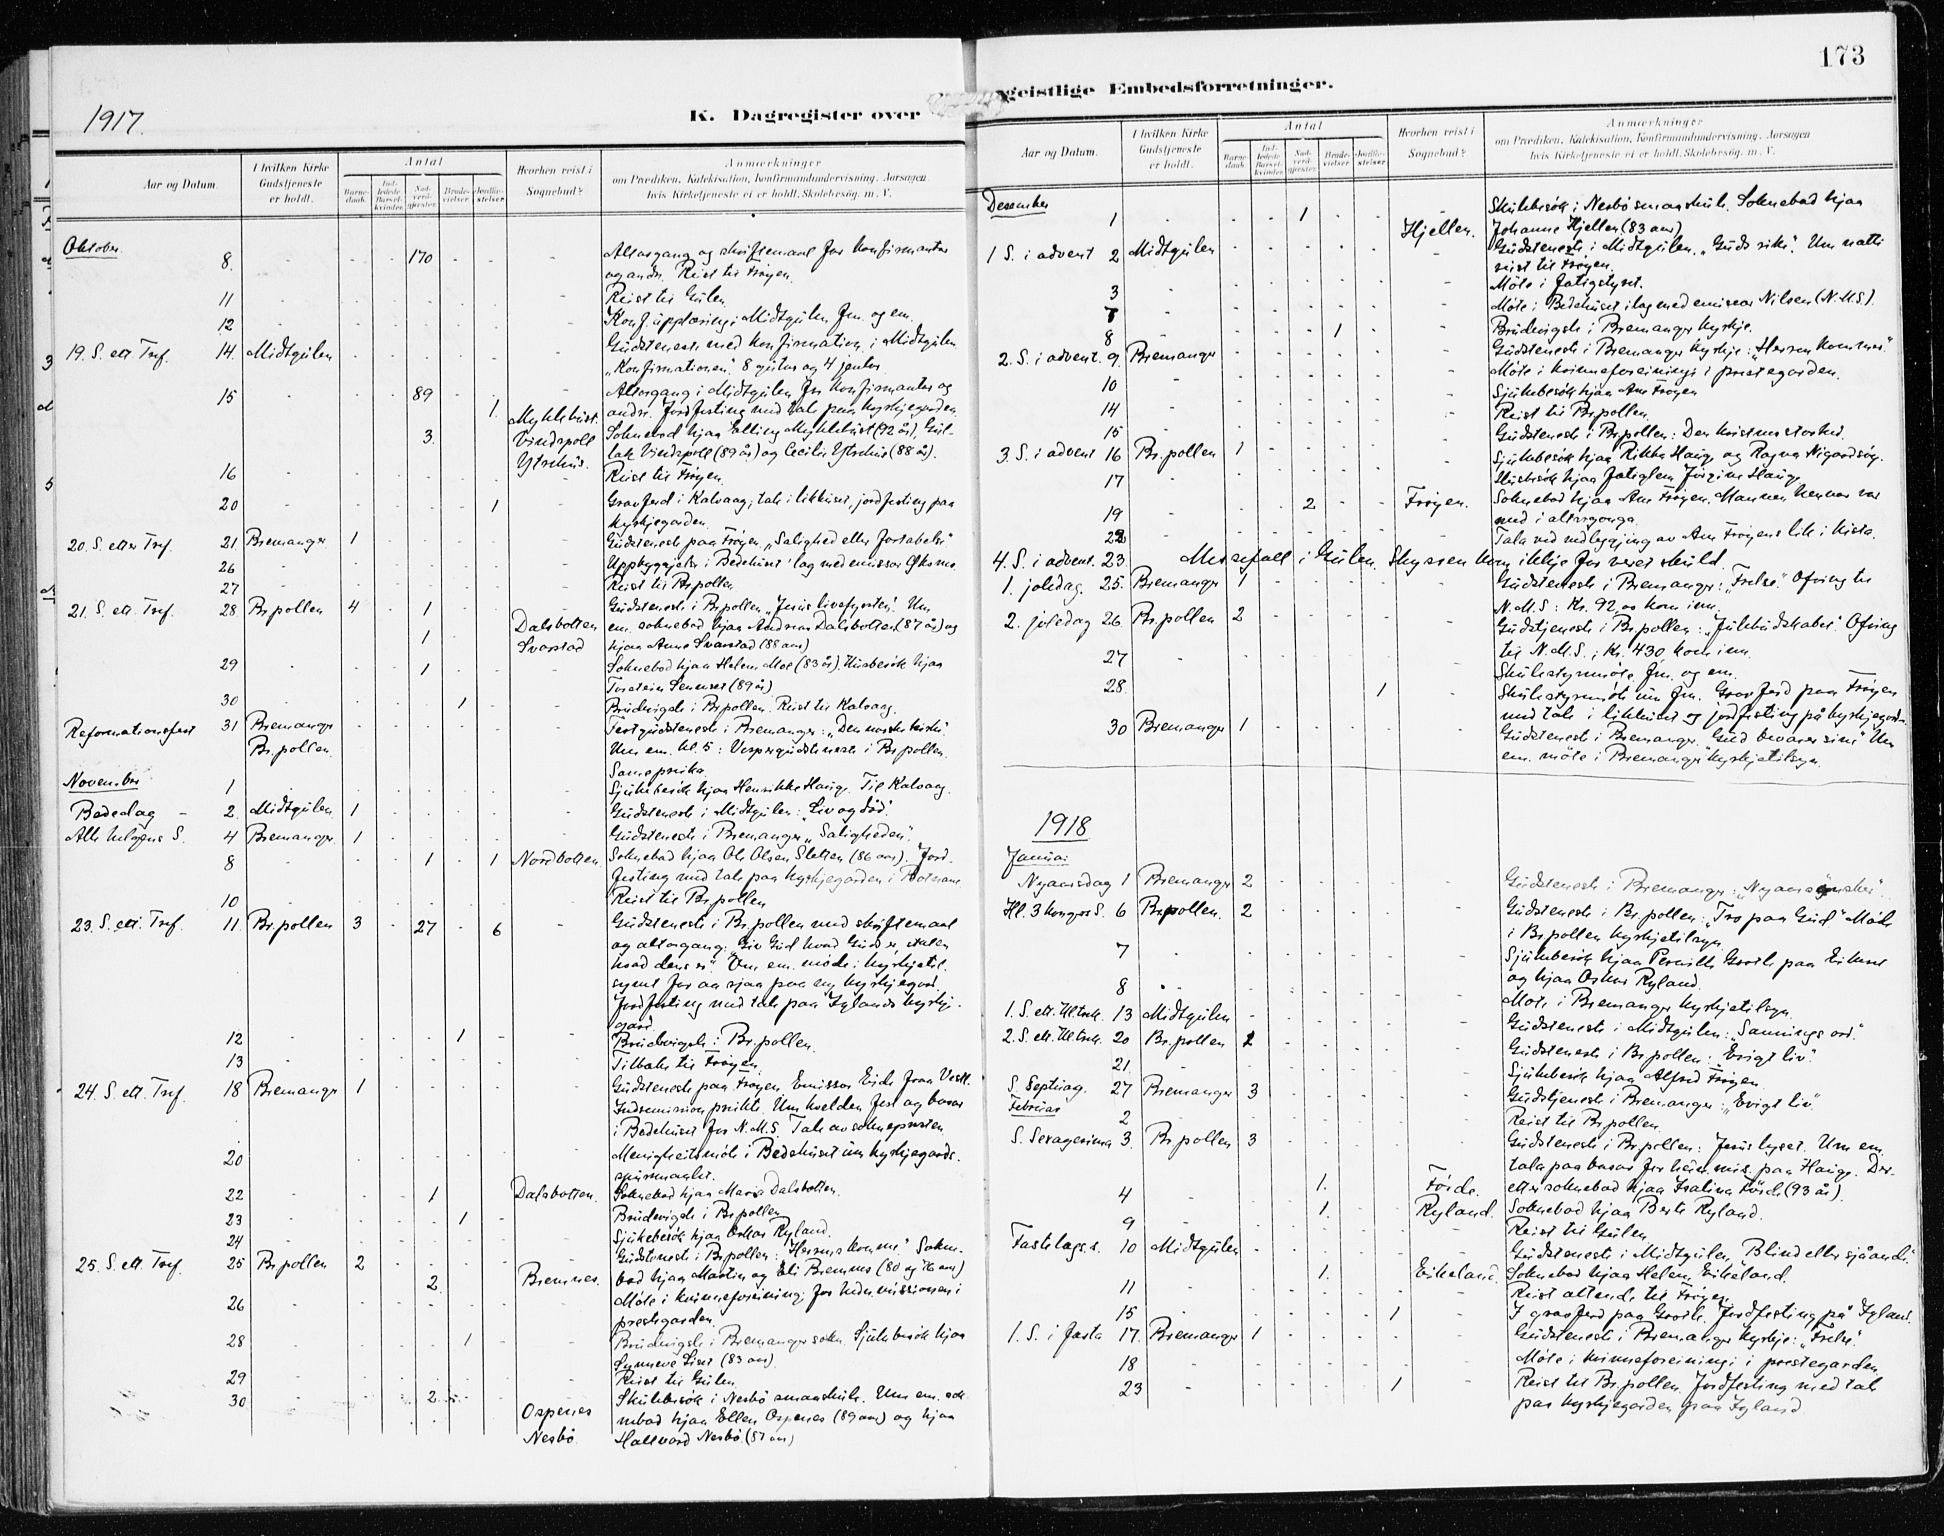 1917.
K. Dagregister over
Aar og Datum.
I hvilken Kirke Gudstjeneste er holdt.
Antal
Barnedaab.
Indledede Barselkvinder.
Nadverdgjester.
Brudevielser.
Jordfæstelser.
Hvorhen reist i Sognebud?
Anmærkninger
om Prædiken, Katekisation, Konfirmandundervisning, Aarsagen hvis Kirketjeneste ei er holdt, Skolebesøg, m. V.
Oktober.
8. 170 Altergang og skriftemaal for konfirmanter
og andre. Reist til Frøyen.
11 Reist til Gulen.
12 Konf. upplæring i Midtgulen fm. og em.
19. S. ett. Tref. 14. Midtgulen Gudsteneste med konfirmation i Midtgulen
"Konfirmationen". 8 gutar og 4 jentor.
15 89 1. Altergang i Midtgulen for konfirmanter og
andre. Jordfesting med tale paa kyrkjegarden.
3. Myklebust. Vindspoll Ytrehus. Soknebod hjaa Elling Myklebust (92 år), Gul-
lak Vindspoll (89 år) og Cecilie Ytrehus (88 år).
16 Reist til Frøyen.
20 1 Gravferd i Kalvaag; tale i likhuset, jordfesting paa
kyrkjegarden.
20. S. etter Tref. 21. Bremanger 1 Gudsteneste paa Frøyen "Salighed eller fortabelse"
26 Uppbyggjelse i Bedehuset i lag med emissær
27 Reist til Br.pollen
21. S. ett. Tref. 28 Br.pollen 4 1 Gudsteneste i Br.pollen "Jesus livsfyrsten". Um
1 Dalsbotten Svarstad em. soknebod hjaa Andreas Dalsbotten (87 år) og
hjaa Anne Svarstad (88 aar)
29 1 Soknebod hjaa Helene Moe (83 år). Husbesøk hjaa
Torstein (89 år)
30 1 Brudvigsle i Br.pollen. Reist til Kalvaag.
Reformationsfest 31 Bremanger Festgudsteneste i Bremanger: "Den norske kirke".
Br.pollen. Um em. kl. 5: Vespergudsteneste i Br.pollen.
Same preika.
November
1 Sjukebesøk hjaa Henrikke Hauge. Til Kalvaag.
Bededag - 2. Midtgulen 1 Gudsteneste i Midtgulen: "Liv og død".
Alle helgens S. 4 Bremanger. 1 Gudsteneste i Bremanger "Saligheden".
8 1 1 Nordbotten Soknebod hjaa Ole Olsen Sletten (86 aar). Jord-
festing med tale paa kyrkjegarden i
10 Reist til Br.pollen
23. S. ett. Tref. 11. Br.pollen 3 27 6 Gudsteneste i Br.pollen med skriftemaal
og altergang: Giv Gud hvad Guds er, staten
hvad dens er". Um em. møde i kyrkjetil-
synet for aa sjaa paa ny kyrkjegard.
Jordfesting med tale paa Igland kyrkje-
gard.
12 1 Brudvigsle i Br.pollen.
13 Tilbake til Frøyen.
24. S. ett. Tref. 18 Bremanger 1 Gudsteneste paa Frøyen. Emissær Eide fraa Vestl.
Indremission preikte. Um kvelden fest og basar
i Bedehuset for N.M.S. Tale av soknepresten
20 Menighetsmøte i Bedehuset um kyrkjegards-
spursmaalet.
22 1 Dalsbotten. Soknebod hjaa Marie Dalsbotten.
23 1 Brudvigsle i Br.pollen
24 Sjukebesøk hjaa Oskar Ryland.
25. S. ett. Tref. 25 Br.pollen 2 Gudsteneste i Br.pollen: "Herrens komme." Sokne-
2 Bremnes. bod hjaa Martin og Eli Bremnes (80 og 76 aar)
26 Møte i kvinneforeining for indremissionen i
prestegarden.
28 1 Brudvigsle i Bremanger sokn. Sjukebesøk hjaa
Synneve (83 aar).
29 Reist til Gulen
30 2 Skulebesøk i Nesbø smaaskule. Um em. sok-
Ospenes nebod hjaa Ellen Ospenes (89 aar) og hjaa
Nesbø Hallvard Nesbø (87 aar)
173
geistlige Embedsforretninger.
Aar og Datum.
I hvilken Kirke Gudstjeneste er holdt.
Antal
Barnedaab.
Indledede Barselkvinder.
Nadverdgjester.
Brudevielser.
Jordfæstelser.
Hvorhen reist i Sognebud?
Anmærkninger
om Prædiken, Katekisation, Konfirmandundervisning, Aarsagen hvis Kirketjeneste ei er holdt, Skolebesøg, m. V.
Desember
1 1 Hjellen. Skulebesøk i Nesbø smaaskule. Soknebod hjaa
Johanne Hjellen (83 aar)
1 S. i advent 2 Midtgulen Gudsteneste i Midtgulen. "Guds rike". Um natti
reist til Frøyen.
3 Møte i fatigstyret.
7 Møte i Bedehuset i lag med emissær Nilsen (N.M.S).
8 1 Brudvigsle i Bremanger kyrkje.
2. S. i advent. 9 Bremanger Gudsteneste i Bremanger kyrkje: "Herren kommer".
10 Møte i kvinneforeiningi i prestegarden.
14 Sjukebesøk hjaa Ane Frøyen
15 Reist til Br.pollen.
3. S. i advent 16 Br.pollen 1 Gudsteneste i Br.pollen: Den kristnes storhed.
17 Sjukebesøk hjaa Rikka Hauge og Ragna
Husbesøk hjaa fatiglem Jørgine Hauge.
19 2 Frøyen. Soknebod hjaa Ane Frøyen. Mannen hennar var
med i altargonga.
22 Tala ved nedlegging av Ane Frøyens lik i kista.
4. S. i advent. 23. Messefall i Gulen. Skyssen kom ikkje for veret skuld.
1. joledag. 25. Bremanger 1 Gudsteneste i Bremanger: "Frelse" Ofring til
N.M.S: Kr. 92 00 kom inn.
2. joledag 26. Br.pollen 2 Gudstjeneste i Br.pollen: "Julebudskabet". Ofring
til N.M.S.; Kr. 430 kom inn.
27 Skulestyremøte fm. og em.
28. 1 Skulestyremøte um fm. Gravferd paa Frøyen
med tale i likhuset og jordfesting på kyrkjegarden
30 Bremanger 1 Gudsteneste i Bremanger. "Gud bevarer sine" Um
em. møte i Bremanger kyrkjetilsyn.
1918
Januar
Nyaarsdag 1 Bremanger 2 Gudsteneste i Bremanger: "Nyaarsønsker".
Hl. 3 kongers S. 6 Br.pollen. 2 Gudsteneste i Br.pollen: "Tro paa Gud" Møte
i Br.pollen kyrkjetilsyn
7 Sjukebesøk hjaa Pernille Grotle paa
og hjaa Oskar Ryland.
8 Møte i Bremanger kyrkjetilsyn.
1. S. ett. Hl.trek. 13 Midtgulen Gudsteneste i Midtgulen: "Sannings ord".
2. S. ett. Hl.trek. 20 Br.pollen 2 Gudsteneste i Br.pollen: "Evigt liv".
21. Sjukebesøk hjaa Alfred Frøyen.
S. Septuag. 27 Bremanger 3 Gudstjeneste i Bremanger: "Evigt liv".
Februar
2 Reist til Br.pollen.
S. Sexagesima 3. Br.pollen 3 Gudsteneste i Br.pollen: Jesus lyset. Um em.
tala paa basar for heimmis. paa Hauge. Der-
4 1. Førde. etter soknebod hjaa Isalina Førde (93 år).
1. Ryland. Soknebod hjaa Berte Ryland.
9 Reist til Gulen
Fastelags s. 10 Midtgulen Gudsteneste i Midtgulen, "Blind eller sjåande".
1. Eikeland. Soknebod hjaa Helene Eikeland.
11 Reist attende til Frøyen
15 1 I gravferd paa Grotle. Jordfesting på Igland.
1. S. i fasta 17. Bremanger 1 Gudsteneste i Bremanger kyrkje: "Frelse".
18 Møte i kvinneforeiningi i prestegarden.
23 1 Reist til Br.pollen. Jordfesting med tale
paa kyrkjegarden paa Igland.